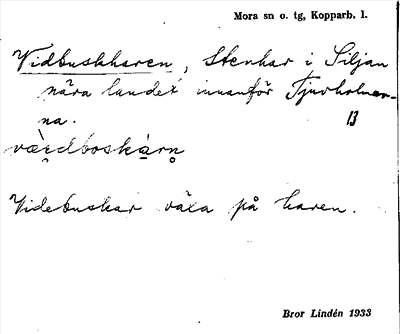 Mora sn o. tg, Kopparb. l.
Vidbuskharen, Stenhar i Siljan
nära landet innanför Tjuvholmar-
na. 13
værdboskàrn
Videbuskar växa på haren.
Bror Lindén 1933